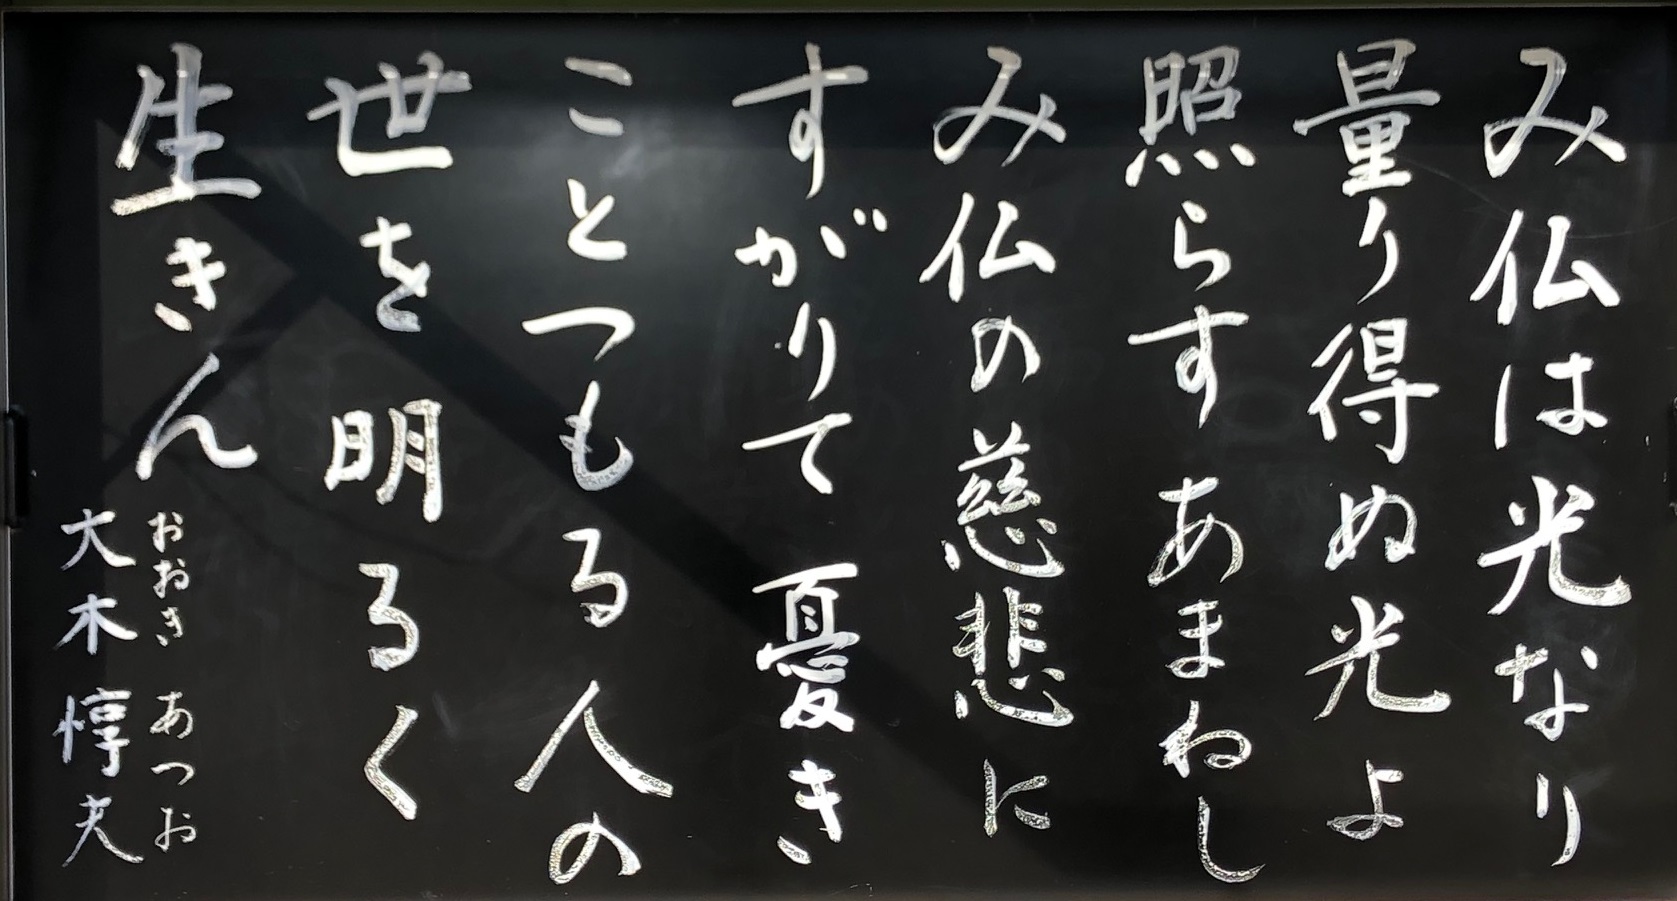 み仏は光なり
量り得ぬ光よ
照らす あまねし
み仏の慈悲に
すがりて 憂き
ことつもる人の
世を 明るく
生きん
おおき あつお
大木 惇夫